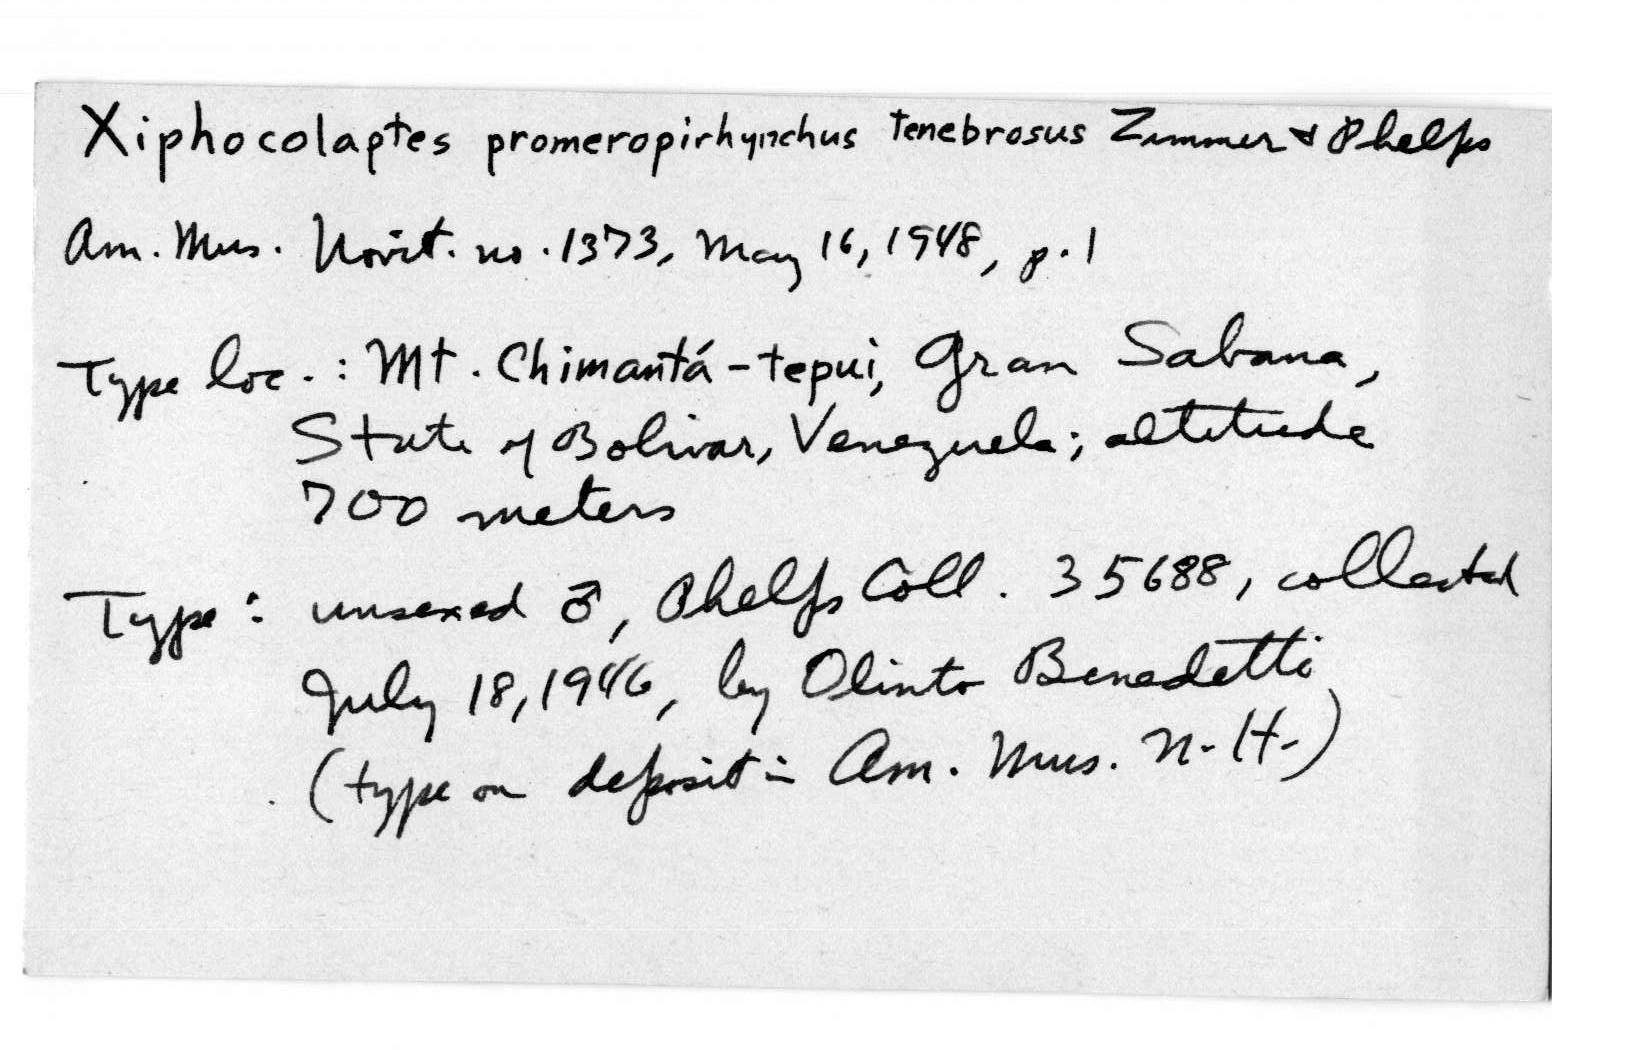 Xiphocolaptes promeropirhynchus tenebrosus Zimmer & Phelps
Am. Mus. Novit. no. 1373, May 16, 1948, p. 1
Type loc. : Mt. Chimantá-tepui, Gran Sabana,
State of Bolivar, Venezuela; altitude
700 meters
Type : unsexed ♂, Phelps Coll. 35688, collected
July 18, 1946, by Olinto Benedetti
(type on deposit in Am. Mus. N. H.)